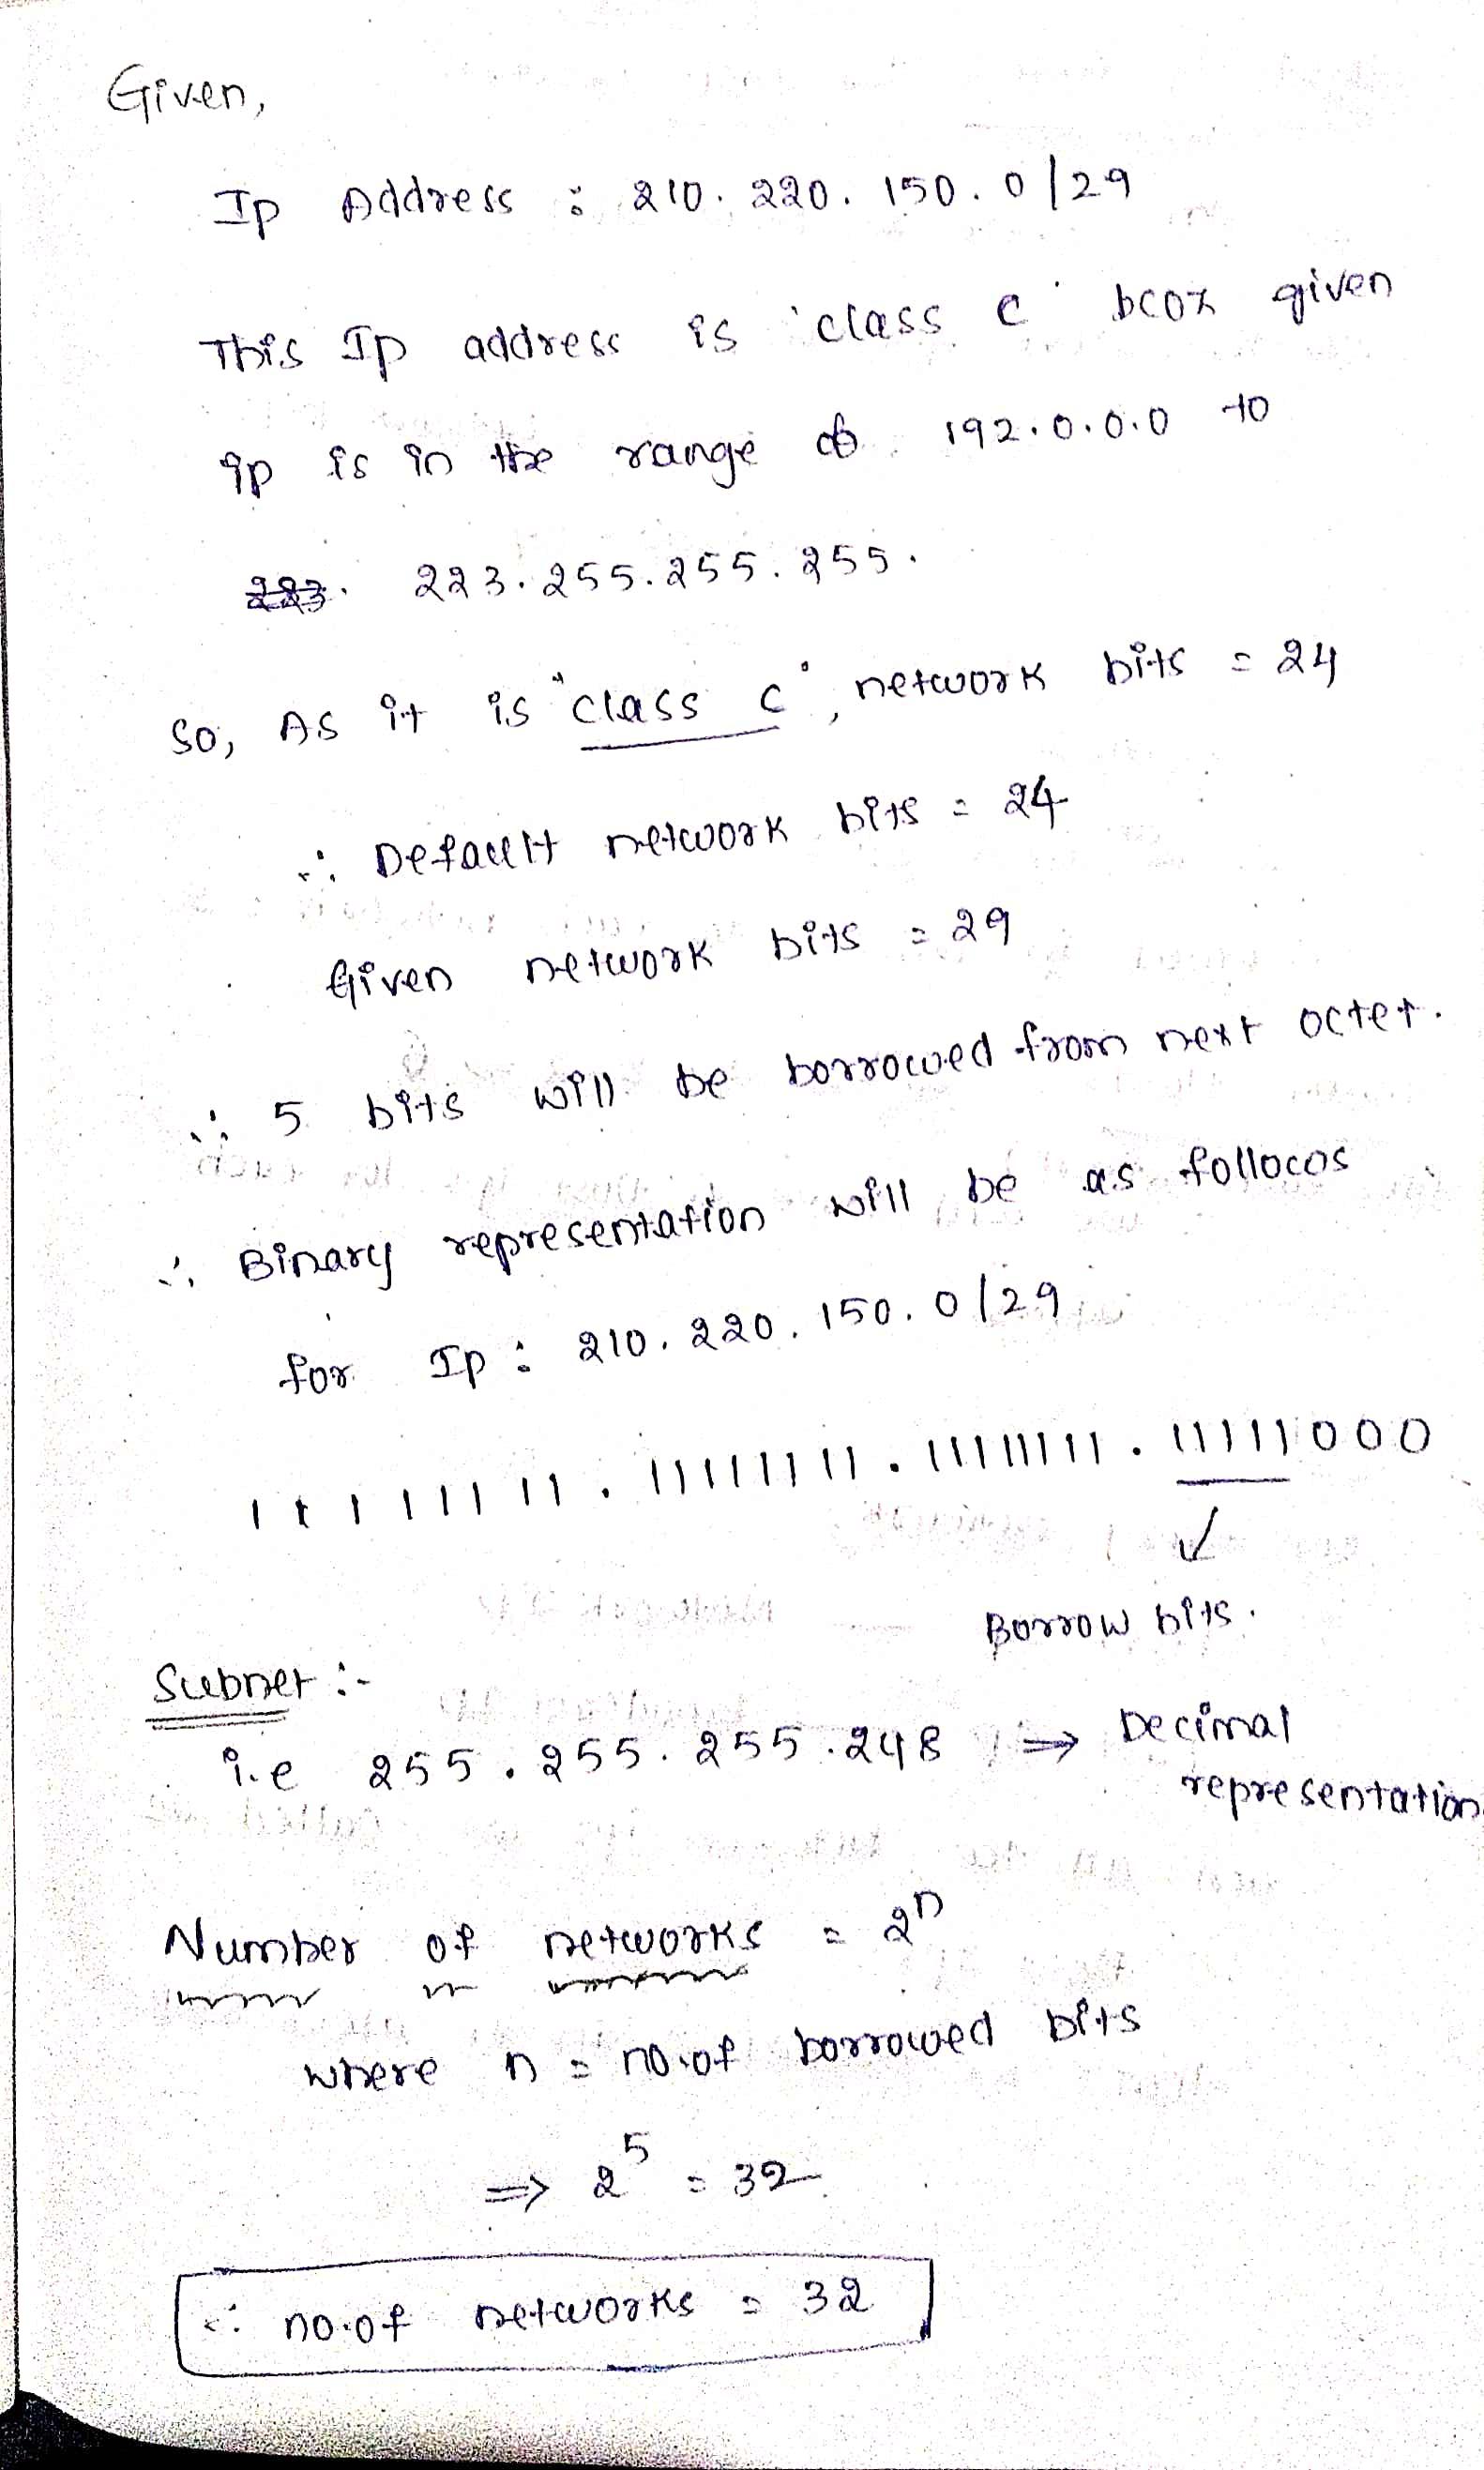 Given,
Ip Address : 210. 220. 150. 0/29
This Ip address is 'class c' bcoz given
ip is in the range of 192.0.0.0 to
223. 223.255.255.255.
So, As it is "class c", network bits = 24
∴ Default network bits = 24
Given network bits = 29
∴ 5 bits will be borrowed from next octet.
∴ Binary representation will be as follows
for Ip : 210. 220. 150. 0/29
11111111 . 11111111 . 11111111 . 11111000
Borrow bits.
Subnet :-
i.e 255.255.255.248 ⇒ Decimal
representation
Number of networks = 2ⁿ
where n = no.of borrowed bits
⇒ 2⁵ = 32
∴ no.of networks = 32